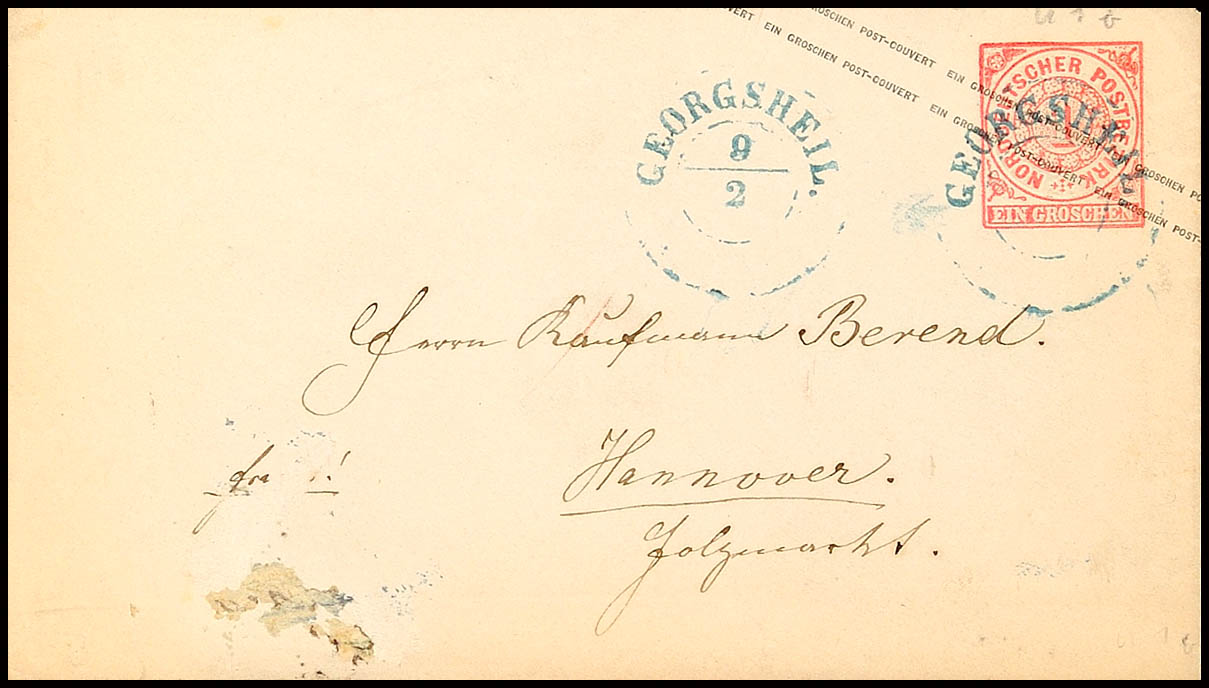 VERT EIN GROSCHEN POST-COUVERT EIN GROSCHEN POST-COUVERT EIN GROSCHEN POST-
GROSCHEN POST-COUVERT EIN GROSCHEN POST-COUVERT EIN GROSCHEN PO
NORDDEUTSCHER POSTBEZIRK
1
EIN GROSCHEN
GEORGSHEIL.
9
2
GEORGSHEIL
Herrn Kaufmann Berend.
Hannover.
Holzmarkt.